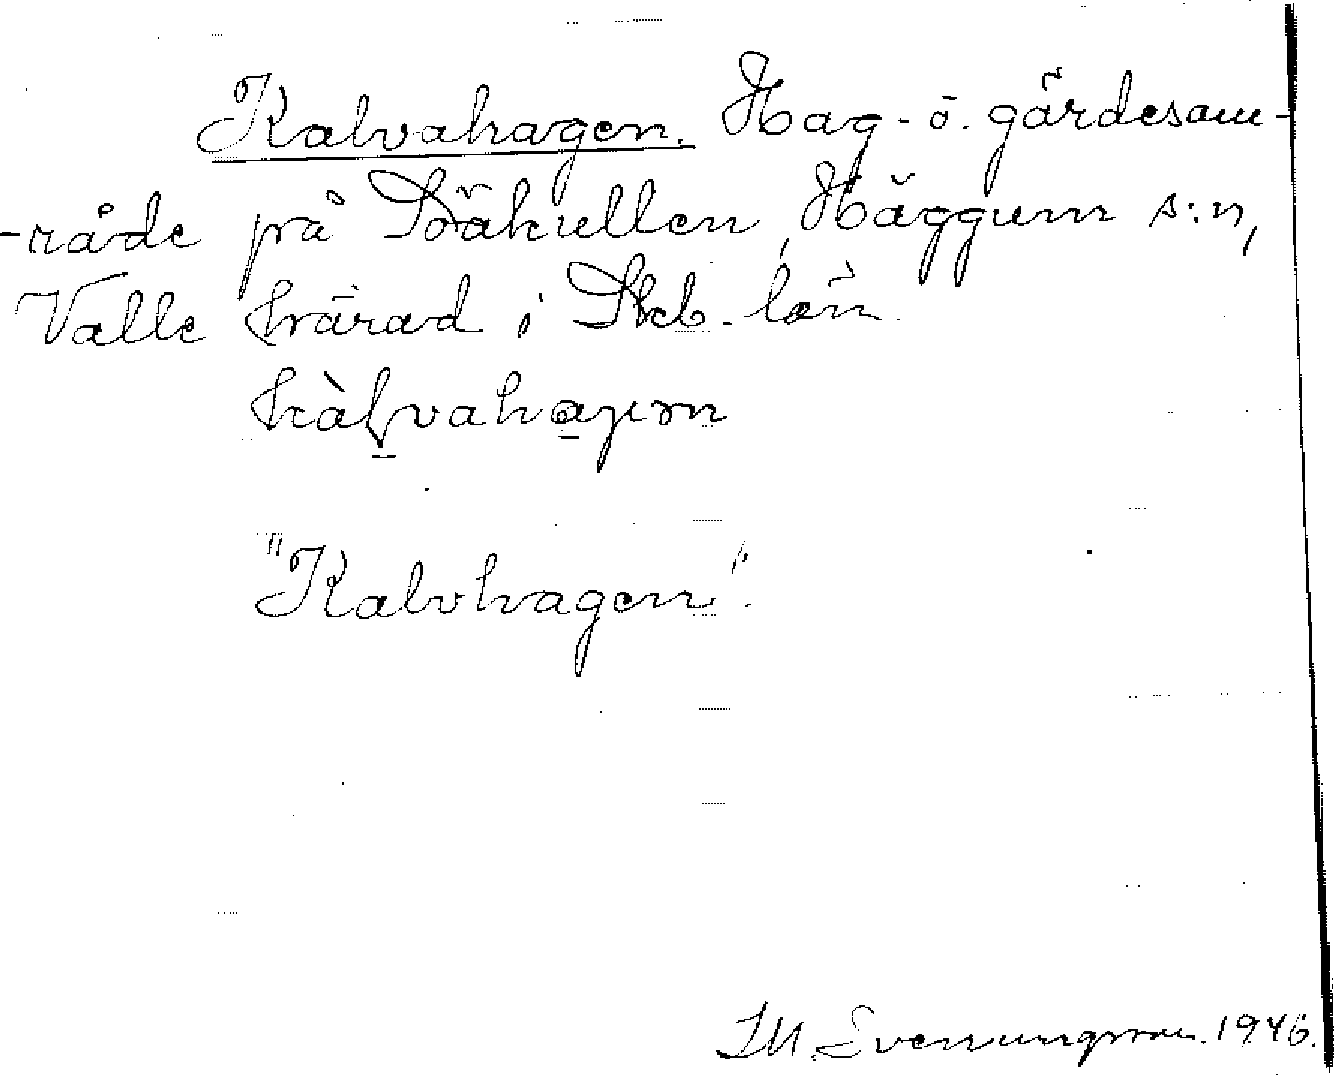 Kalvahagen. Hag- o. gärdesom-
-råde på Lövkullen, Häggum s:n,
Valle härad i Skb. län.
kàl̬vahaɡɷn
"Kalvhagen".
I.M. Svenungsson. 1946.